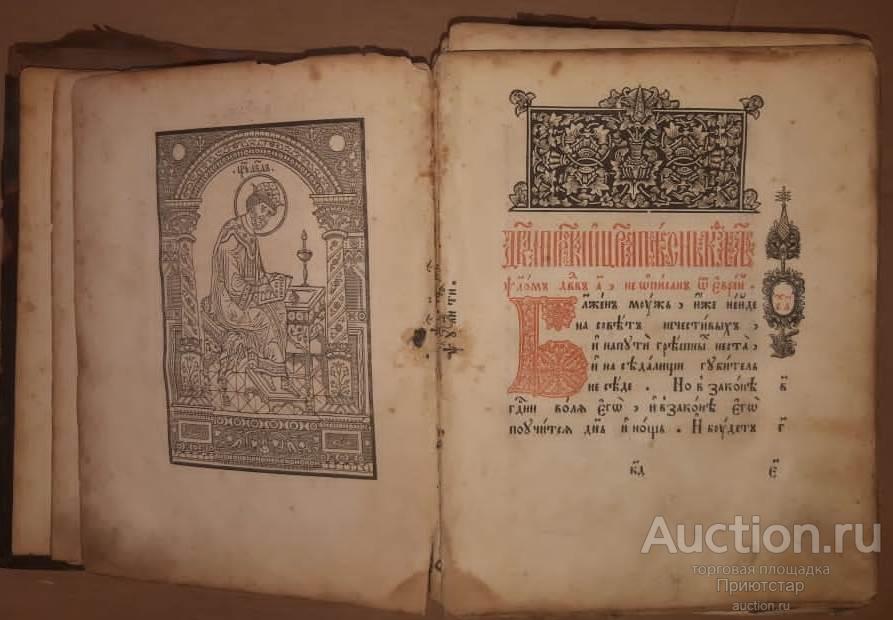 ѱало́мъ дв҃дъ а҃, неѡписан ѿ Еврїй.
Бл҃женъ моужъ, и҆же не и҆де
на совѣтъ нечестивыхъ,
и҆ напути грѣшныⷯ неста,
и҆ на сѣдалищи губитель
не сѣде. Но в҆ законѣ
гдⷭ҇ни волѧ е҆гѡ, и҆ в҆законѣ е҆гѡ
поучитсѧ дн҃ь и҆ нощь. И҆ боудетъ
в҃
г҃
к҃д
є҃
Auction.ru
торговая площадка
Приютстар
auction.ru